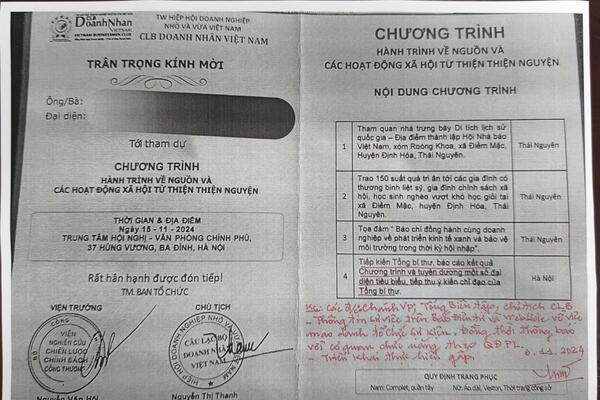 CLB
Doanh Nhân
VIỆT NAM
VIETNAM BUSINESSMEN CLUB
TW HIỆP HỘI DOANH NGHIỆP
NHỎ VÀ VỪA VIỆT NAM
CLB DOANH NHÂN VIỆT NAM
TRÂN TRỌNG KÍNH MỜI
Ông/Bà:
Đại diện:
Tới tham dự
CHƯƠNG TRÌNH
HÀNH TRÌNH VỀ NGUỒN VÀ
CÁC HOẠT ĐỘNG XÃ HỘI TỪ THIỆN THIỆN NGUYỆN
THỜI GIAN & ĐỊA ĐIỂM
Ngày 15 - 11 - 2024
TRUNG TÂM HỘI NGHỊ - VĂN PHÒNG CHÍNH PHỦ,
37 HÙNG VƯƠNG, BA ĐÌNH, HÀ NỘI
Rất hân hạnh được đón tiếp!
TM. BAN TỔ CHỨC
VIỆN TRƯỞNG
CHỦ TỊCH
VIỆN
NGHIÊN CỨU
CHIẾN LƯỢC
CHÍNH SÁCH
CÔNG THƯƠNG
CÂU LẠC BỘ
DOANH NHÂN
VIỆT NAM
Nguyễn Văn Hội
Nguyễn Thị Thanh
CHƯƠNG TRÌNH
HÀNH TRÌNH VỀ NGUỒN VÀ
CÁC HOẠT ĐỘNG XÃ HỘI TỪ THIỆN THIỆN NGUYỆN
NỘI DUNG CHƯƠNG TRÌNH
1 Tham quan nhà trưng bày Di tích lịch sử
quốc gia – Địa điểm thành lập Hội Nhà báo
Việt Nam, xóm Roòng Khoa, xã Điềm Mặc,
Huyện Định Hóa, Thái Nguyên.
Thái Nguyên
2 Trao 150 suất quà tri ân tới các gia đình có
thương binh liệt sỹ, gia đình chính sách xã
hội, học sinh nghèo vượt khó học giỏi tại
xã Điềm Mặc, huyện Định Hóa, Thái
Nguyên.
Thái Nguyên
3 Tọa đàm " Báo chí đồng hành cùng doanh
nghiệp về phát triển kinh tế xanh và bảo vệ
môi trường trong thời kỳ hội nhập"
Thái Nguyên
4 Tiếp kiến Tổng bí thư, báo cáo kết quả
Chương trình và tuyên dương một số đại
diện tiêu biểu, tiếp thu ý kiến chỉ đạo của
Tổng bí thư.
Hà Nội
Chánh VP, Tổng Biên tập, chủ tịch CLB
- Thông tin sự việc trên Báo Điện tử và Website về
mạo danh tổ chức sự kiện. Đồng thời thông báo
với cơ quan chức năng theo QĐPL.
- Triển khai thực hiện gấp.
6.11.2024
QUY ĐỊNH TRANG PHỤC
Nam: Complet, quần tây
Nữ: Áo dài, Veston, Thời trang công sở